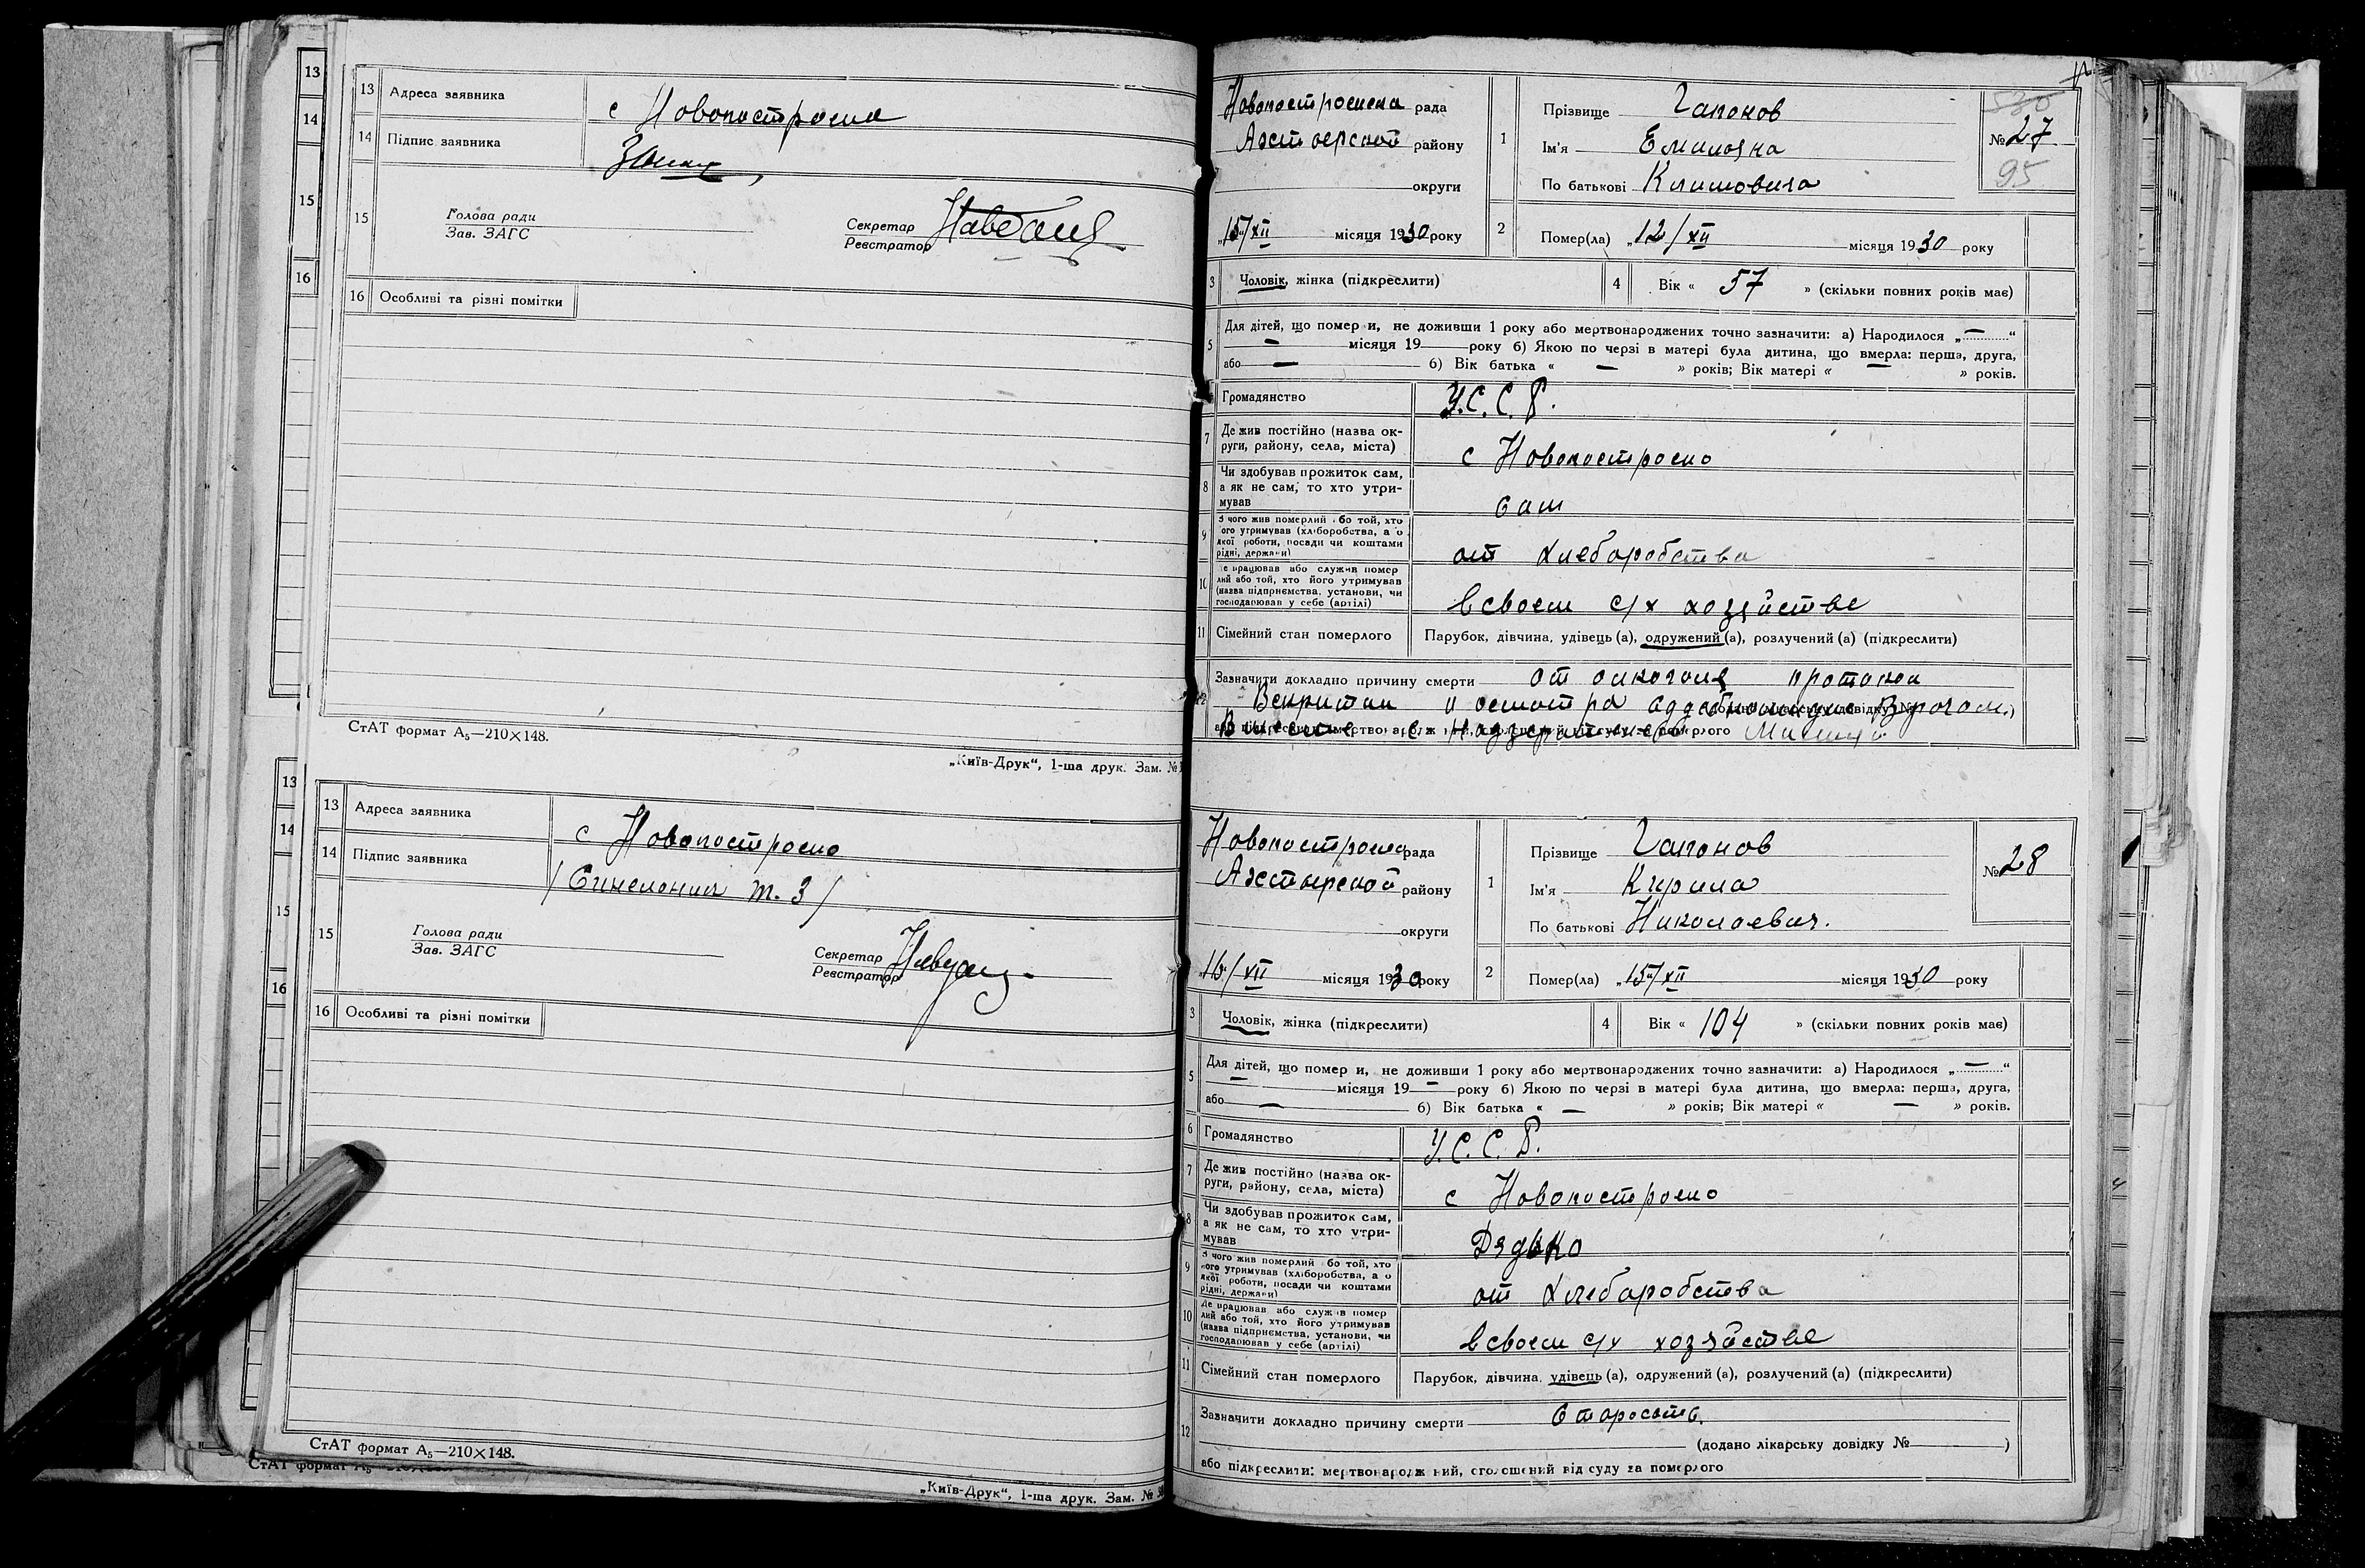 13
14
15
16
13 Адреса заявника с Новопостроено
14 Підпис заявника
15 Голова ради
Зав. ЗАГС
Секретар
Реєстратор
16 Особливі та різні помітки
СтАТ формат А5—210×148.
„Київ-Друк“, 1-ша друк. Зам. №
13
14
15
16
13 Адреса заявника с Новопостроено
14 Підпис заявника
15 Голова ради
Зав. ЗАГС
Секретар
Реєстратор
16 Особливі та різні помітки
СтАТ формат А5—210×148.
СтАТ формат А5
„Київ-Друк“, 1-ша друк. Зам. №
рада
Ахстырской району
округи
„15“/XII місяця 1930 року
1 Прізвище Гапонов
Ім'я Емиляна
По батькові Климовича
№ 27
530
95
2 Помер(ла) „12/XII місяця 1930 року
3 Чоловік, жінка (підкреслити)
4 Вік « 57 » (скільки повних років має)
5 Для дітей, що померли, не доживши 1 року або мертвонароджених точно зазначити: а) Народилося „—“
— місяця 19 року б) Якою по черзі в матері була дитина, що вмерла: перша, друга,
або — б) Вік батька « — » років; Вік матері « — » років.
Громадянство У.С.С.Р.
7 Де жив постійно (назва ок-
руги, району, села, міста) с Новопостроено
8 Чи здобував прожиток сам,
а як не сам, то хто утри-
мував сам
9 З чого жив померлий або той, хто
його утримував (хліборобства, а о
якої роботи, посади чи коштами
рідні, держави) от хлеборобства
10 Де працював або служив помер
лий або той, хто його утримував
(назва підприємства, установи, чи
господарював у себе (артілі) в своем с/х хозяйстве
11 Сімейний стан померлого Парубок, дівчина, удівець (а), одружений (а), розлучений (а) (підкреслити)
12 Зазначити докладно причину смерти от алкоголя протокол
рада
Ахстырской району
округи
„16“/XII місяця 1930 року
1 Прізвище Гапонов
Ім'я Кирила
По батькові Николаевич.
№ 28
2 Помер(ла) „15“/XII місяця 1930 року
3 Чоловік, жінка (підкреслити)
4 Вік « 104 » (скільки повних років має)
5 Для дітей, що померли, не доживши 1 року або мертвонароджених точно зазначити: а) Народилося „—“
— місяця 19 — року б) Якою по черзі в матері була дитина, що вмерла: перша, друга,
або — б) Вік батька « — » років; Вік матері « — » років.
6 Громадянство У.С.С.Р.
7 Де жив постійно (назва ок-
руги, району, села, міста) с Новопостроено
8 Чи здобував прожиток сам,
а як не сам, то хто утри-
мував Дядько
9 З чого жив померлий або той, хто
його утримував (хліборобства, а о
якої роботи, посади чи коштами
рідні, держави) от хлеборобства
10 Де працював або служив помер
лий або той, хто його утримував
(назва підприємства, установи, чи
господарював у себе (артілі) в своем с/х хозяйстве
11 Сімейний стан померлого Парубок, дівчина, удівець (а), одружений (а), розлучений (а) (підкреслити)
12 Зазначити докладно причину смерти
(додано лікарську довідку № )
або підкреслити: мертвонароджений, оголошений від суду за померлого